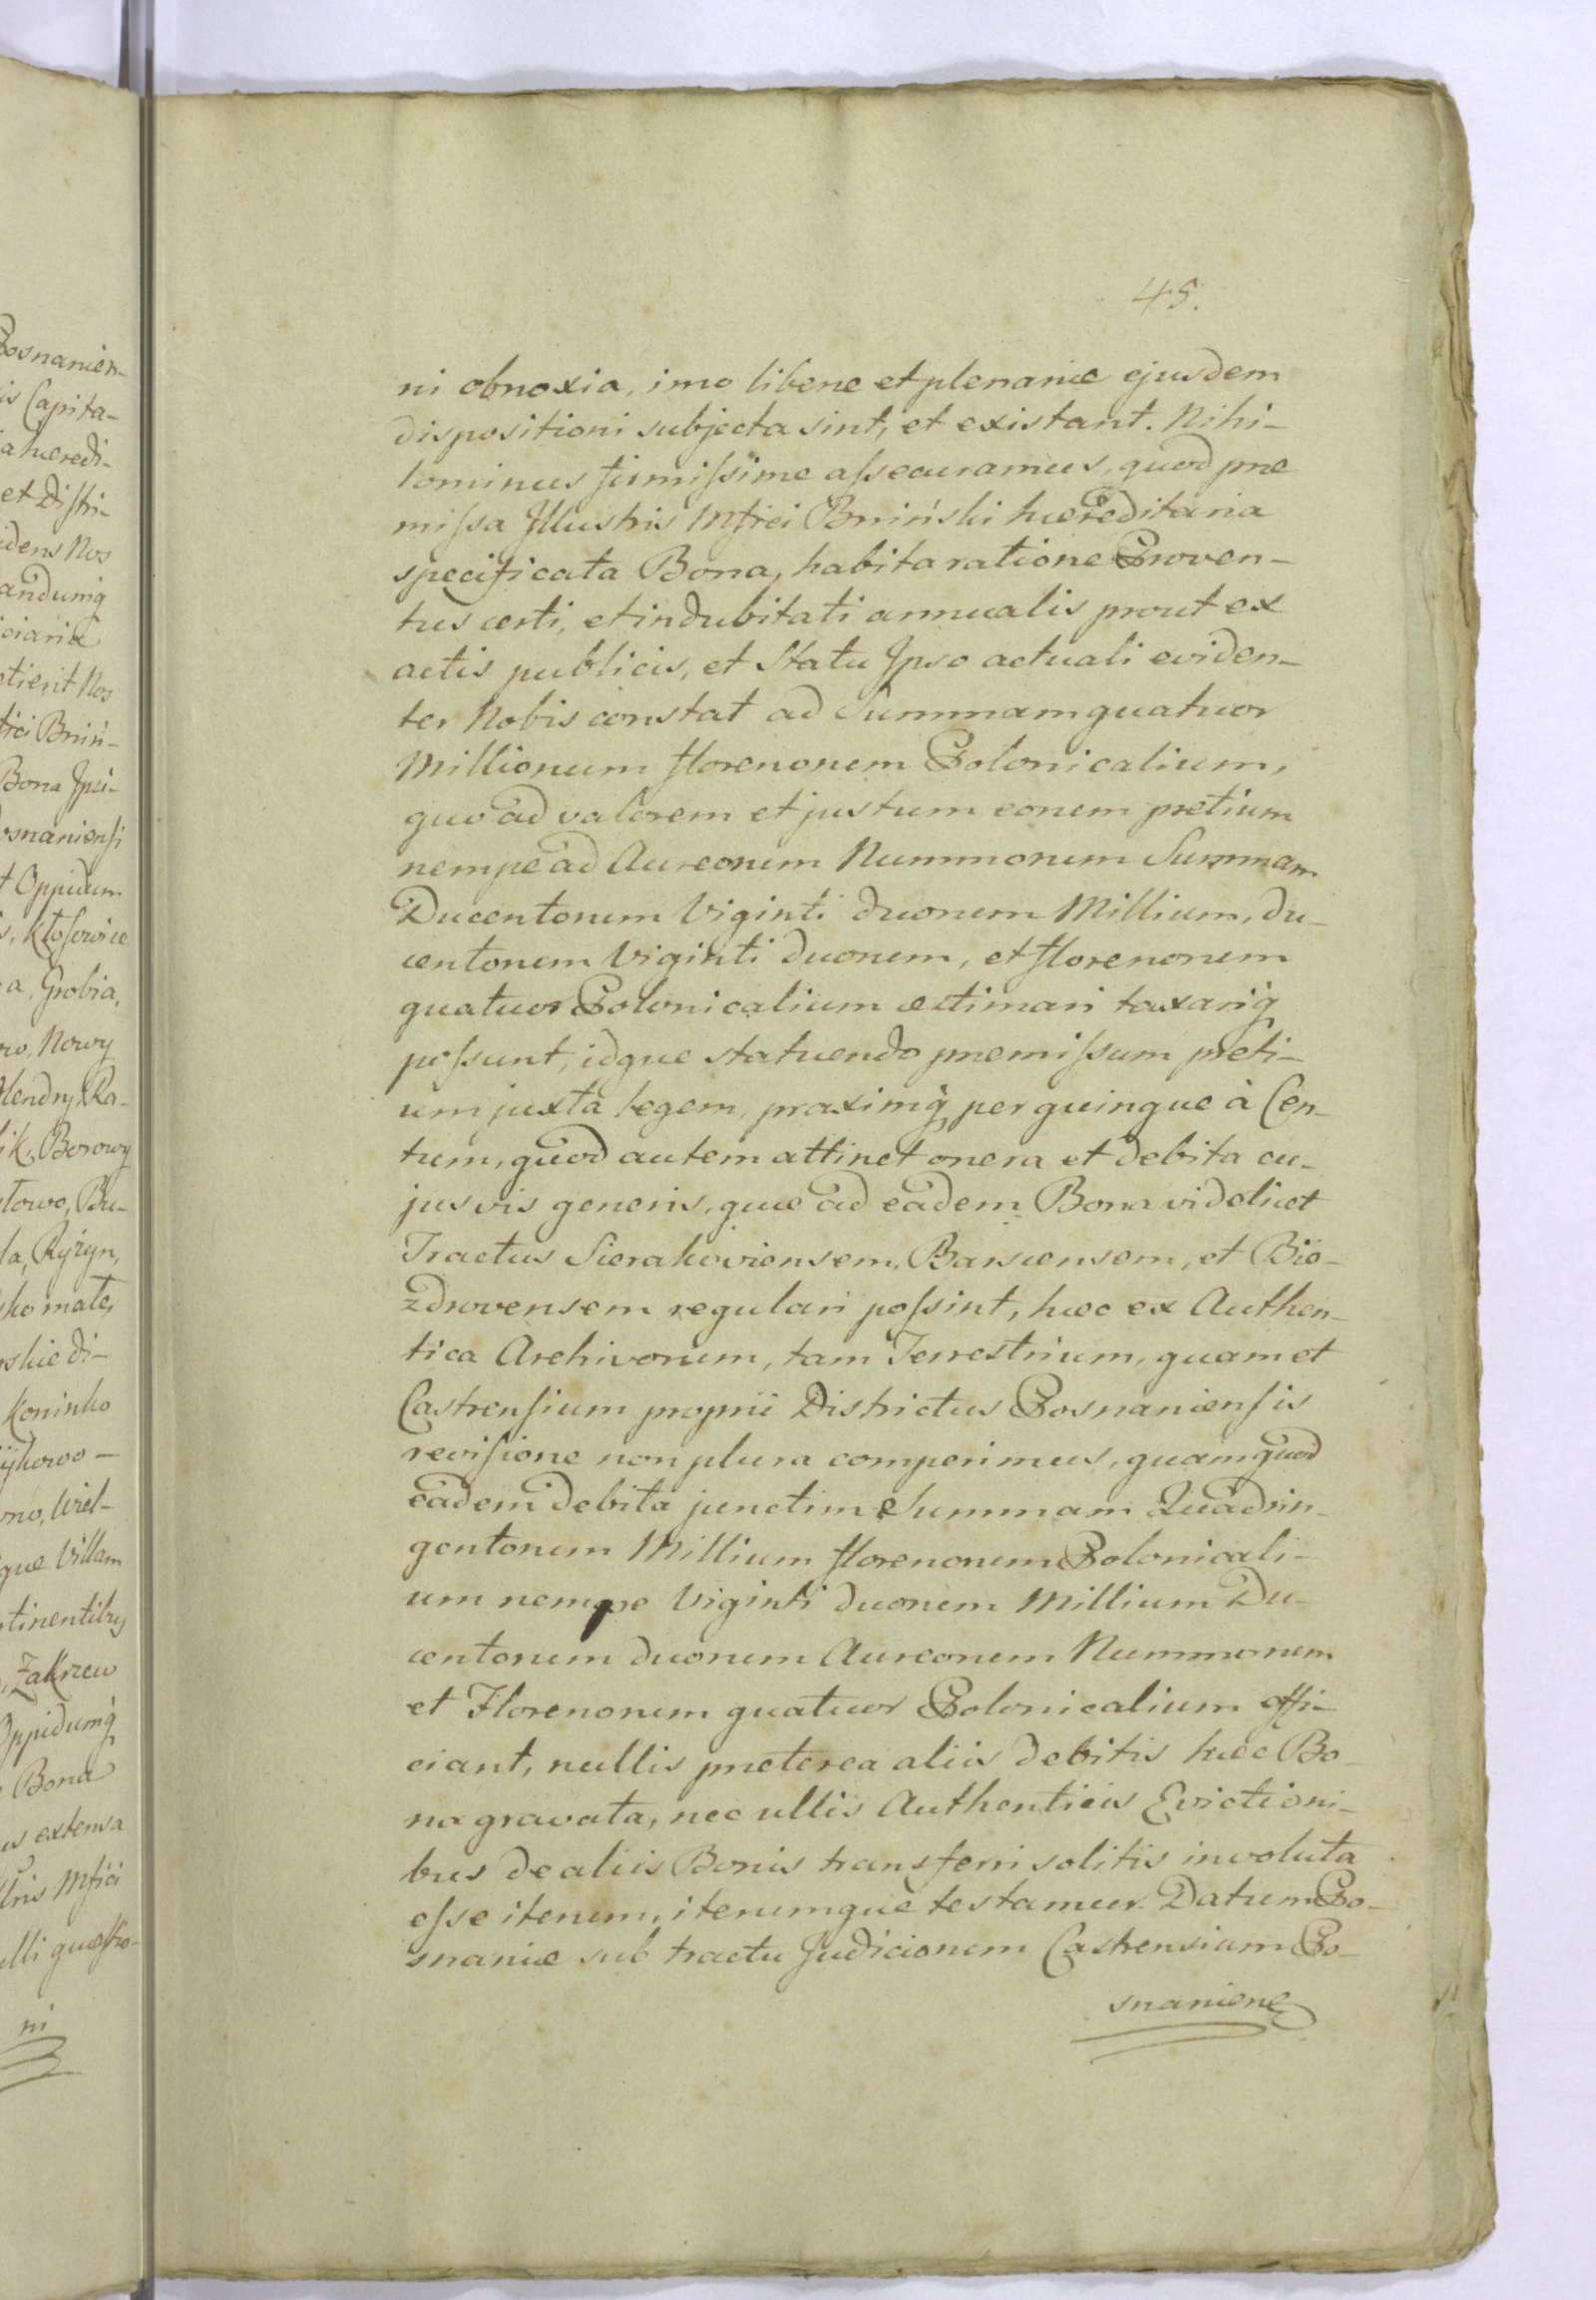 45.
ni obnoxia, imo liberæ et plenariæ ejusdem
dispositioni subjecta sint, et existant. Nihi-
lominus firmiſsime aſsecuramus, quod præ
miſsa Jllustris Mfici Bniński hæreditaria
specificata Bona, habita ratione Proven-
tus certi, et indubitati annualis prout ex
actis publicis, et Statu Jpso actuali eviden-
ter Nobis constat ad Summam quatuor
Millionum florenorum Polonicalium,
quo ad valorem et justum eorum pretium
nempe ad Aureorum Nummorum Summam
Ducentorum Viginti duorum Millium, du-
centorum Viginti duorum, et florenorum
quatuor Polonicalium æstimari taxariq̃
poſsunt, idque statuendo præmiſsum preti-
um juxta legem, praximq̃ per quinque à Cen-
tum, quod autem attinet onera et debita cu-
jus vis generis, quæ ad eadem Bona videlicet
Tractus Sierakoviensem, Barscensem, et Bie-
zdrovensem regulari poſsint, hæc ex Authen-
tica Archivorum, tam Terrestrium, quam et
Castrenſium proprii Districtus Posnanienſis
reviſione non plura comperimus, quam quod
eadem debita junctim Summam Quadrin-
gentorum Millium florenorum Polonicali-
um nempe Viginti duorum Millium Du-
centorum duorum Aureorum Nummorum
et Florenorum quatuor Polonicalium effi-
ciant, nullis præterea aliis debitis hæc Bo-
na gravata, nec ullis Authenticis Evictioni-
bus de aliis Bonis transferri solitis involuta
eſse iterum, iterumque testamur. Datum Po-
snaniæ sub tractu Judiciorum Castrensium Po-
snaniene
Posnanien-
is Capita-
a hæredi-
et Diſtri-
idens Nos
andumq̃
ciariæ
etierit Nos
fici Bniń-
Bona Jpsi-
osnanienſi
t Oppidum
s, Kłoſowice
a, Grobia,
wo, Nowy
lendry, Ra-
ik, Borowy
towo, Bu-
la, Ryżyn,
sko małe,
rskie di-
Koninko
ÿkowo-
no, Wiel-
que Villam
tinentibus
, Zakrzew
Oppidumq̃
Bona
us extensa
llris Mfici
ulli quæſtio-
ni